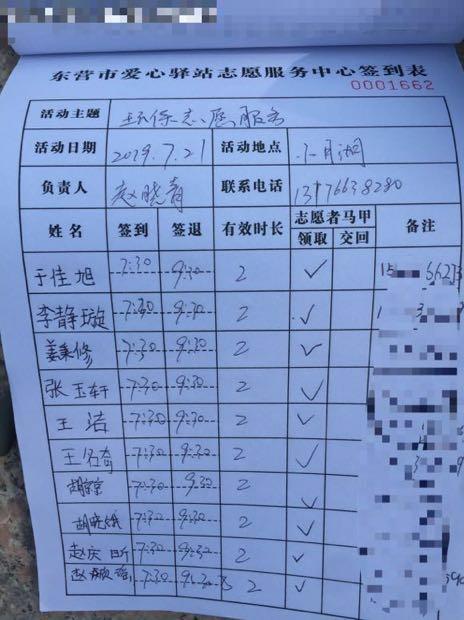 东营市爱心驿站志愿服务中心签到表
0001662
活动主题 环保志愿服务
活动日期 2019.7.21 活动地点 月湖
负责人 赵晓青 联系电话 13176638280
姓名 签到 签退 有效时长 志愿者马甲 备注
领取 交回
于佳旭 7:30 9:30 2 ✓
李静璇 7:30 9:30 2 ✓
姜秉修 7:30 9:30 2 ✓
张玉轩 7:30 9:30 2 ✓
王洁 7:30 9:30 2 ✓
王名奇 7:30 9:30 2 ✓
7:30 9:30 2 ✓
胡晓 7:30 9:30 2 ✓
赵庆 7:30 9:30 2 ✓
赵 7:30 9:30 2 ✓